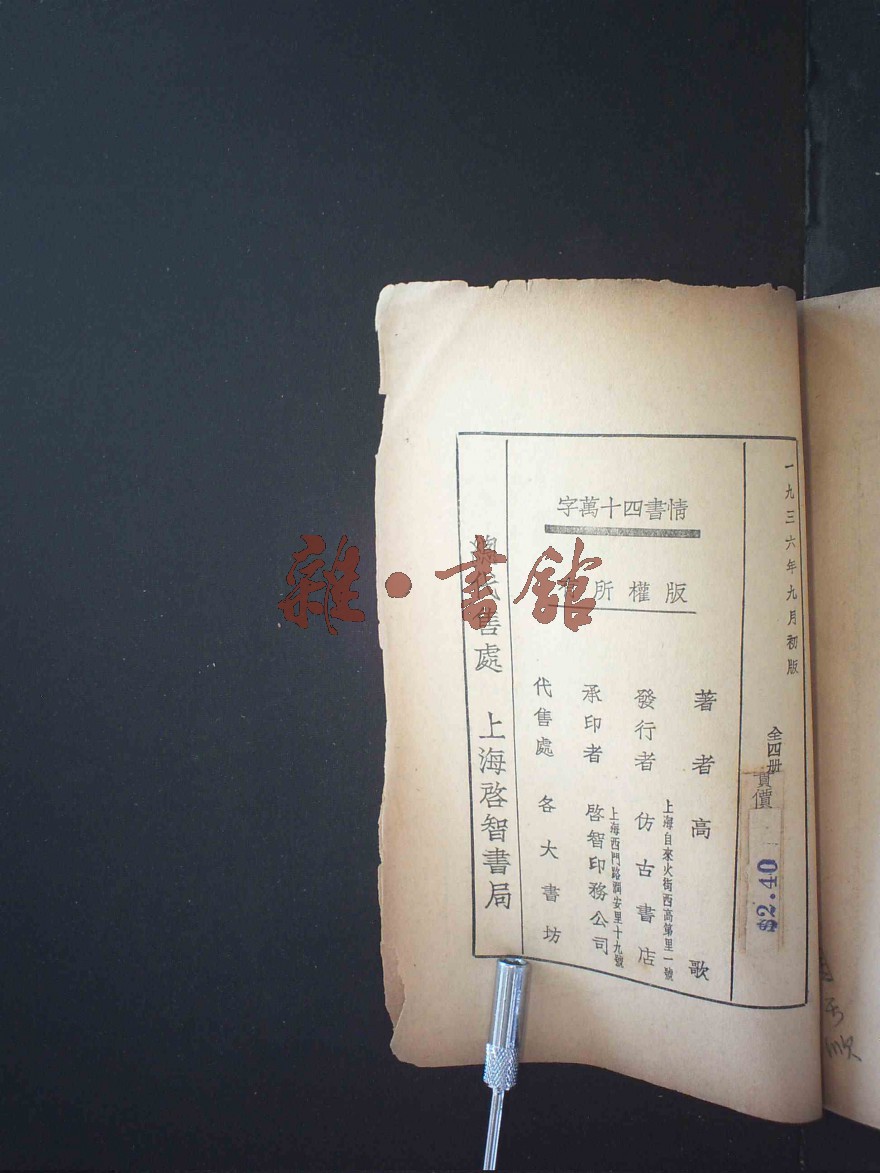 一九三六年九月初版
全四册
實價
$2.40
情書四十萬字
版權所有
著者 高歌
發行者 仿古書店
上海自來火街西高第里一號
承印者 啓智印務公司
上海西門路潤安里十九號
代售處 各大書坊
代售處 上海啓智書局
雜·書館